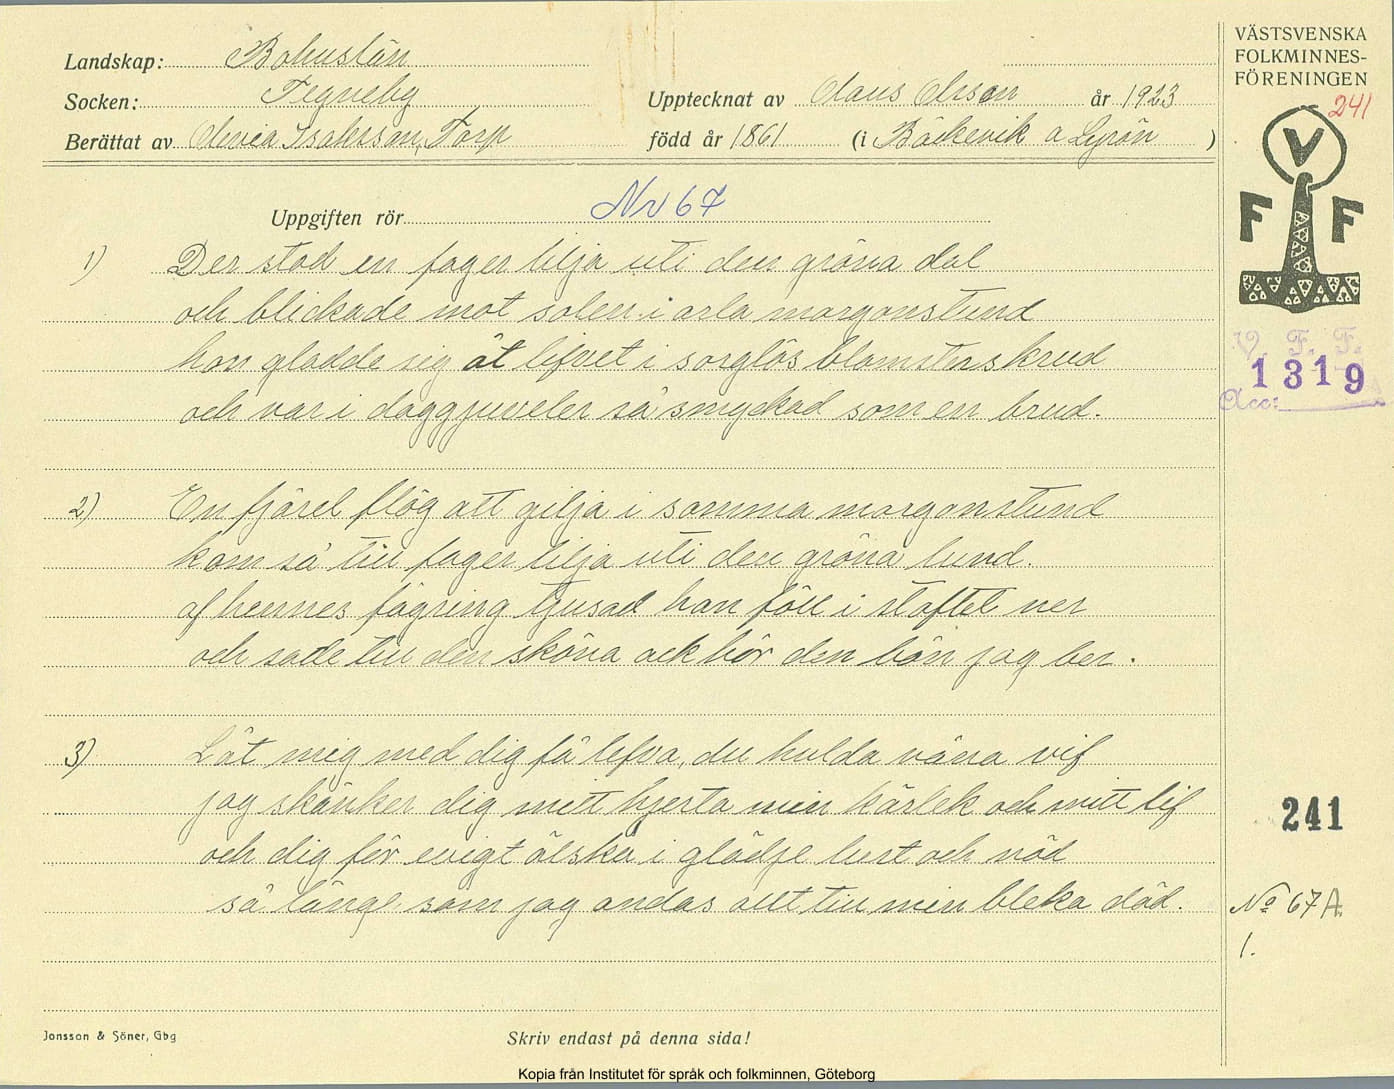 Landskap: Bohuslän
Socken: Tegneby
Berättat av Olivia Isaksson, Torp
Upptecknat av Olaus Olsson år 1923
född år 1861 (i Bäckevik a Lyrön )
VÄSTSVENSKA
FOLKMINNES-
FÖRENINGEN
241
V
F F
Uppgiften rör Nr 67
1) Der stod en fager lilja uti den gröna dal
och blickade mot solen i arla morgonstund
hon gladde sig åt lifvet i sorglös blomsterskrud
och var i daggjuveler så smyckad som en brud.
V. F. F.
1319
Acc:
2) En fjäril flög att gilja i samma morgonstund
kom så till fager lilja uti den gröna lund.
af hennes fägring tjusad han föll i stoftet ner
och sade till den sköna ack hör den bön jag ber.
3) Låt mig med dig få lefva, du hulda väna vif
jag skänker dig mitt hjerta min kärlek och mitt lif
och dig för evigt älska i glädje lust och nöd
så länge som jag andas allt till min bleka död.
241
No 67 A.
1.
Jonsson & Söner, Gbg
Skriv endast på denna sida!
Kopia från Institutet för språk och folkminnen, Göteborg